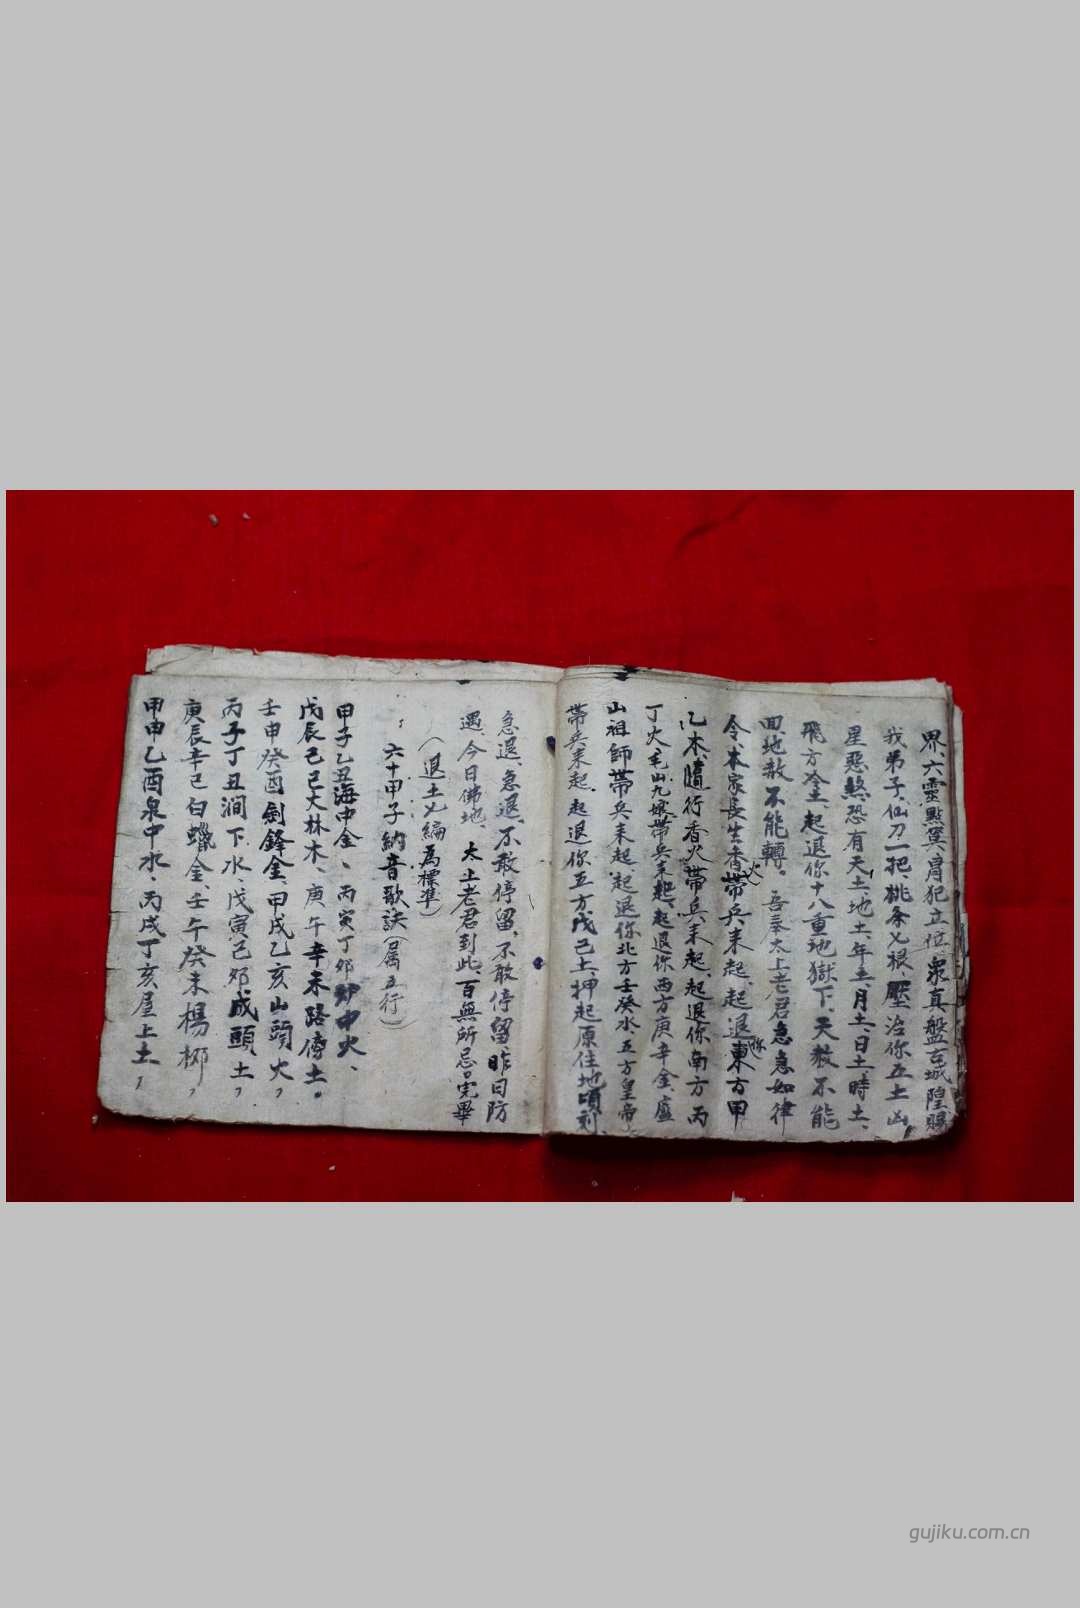 界、六靈點箕、肩犯立位、衆真盤古、城隍賜
我弟子仙刀一把、桃条七根、壓治你五土凶
星惡煞、恐有天土、地土、年土、月土、日土、時土、
飛方冷土、起退你十八重地獄下、天赦不能
回、地赦不能轉。吾奉太上老君急急如律
令、本家長生香火帶兵来起、起退你東方甲
乙木、隨行香火帶兵来起、起退你南方丙
丁火、毛山九娘帶兵来起、起退你西方庚辛金、廬
山祖師帶兵来起、起退你北方壬癸水、五方皇帝
帶兵来起、起退你五方戊己土、押起原住地、頃刻
急退、急退、不敢停留、不敢停留、昨日防
遇、今日佛地、太上老君到此、百無所忌。完畢
(退土七編為標準)
六十甲子納音歌訣(属五行)
甲子乙丑海中金、丙寅丁卯炉中火、
戊辰己巳大林木、庚午辛未路傍土。
壬申癸酉劍鋒金、甲戌乙亥山頭火,
丙子丁丑澗下水、戊寅己卯成頭土,
庚辰辛巳白蠟金、壬午癸未楊柳,
甲申乙酉泉中水、丙戌丁亥屋上土,
gujiku.com.cn